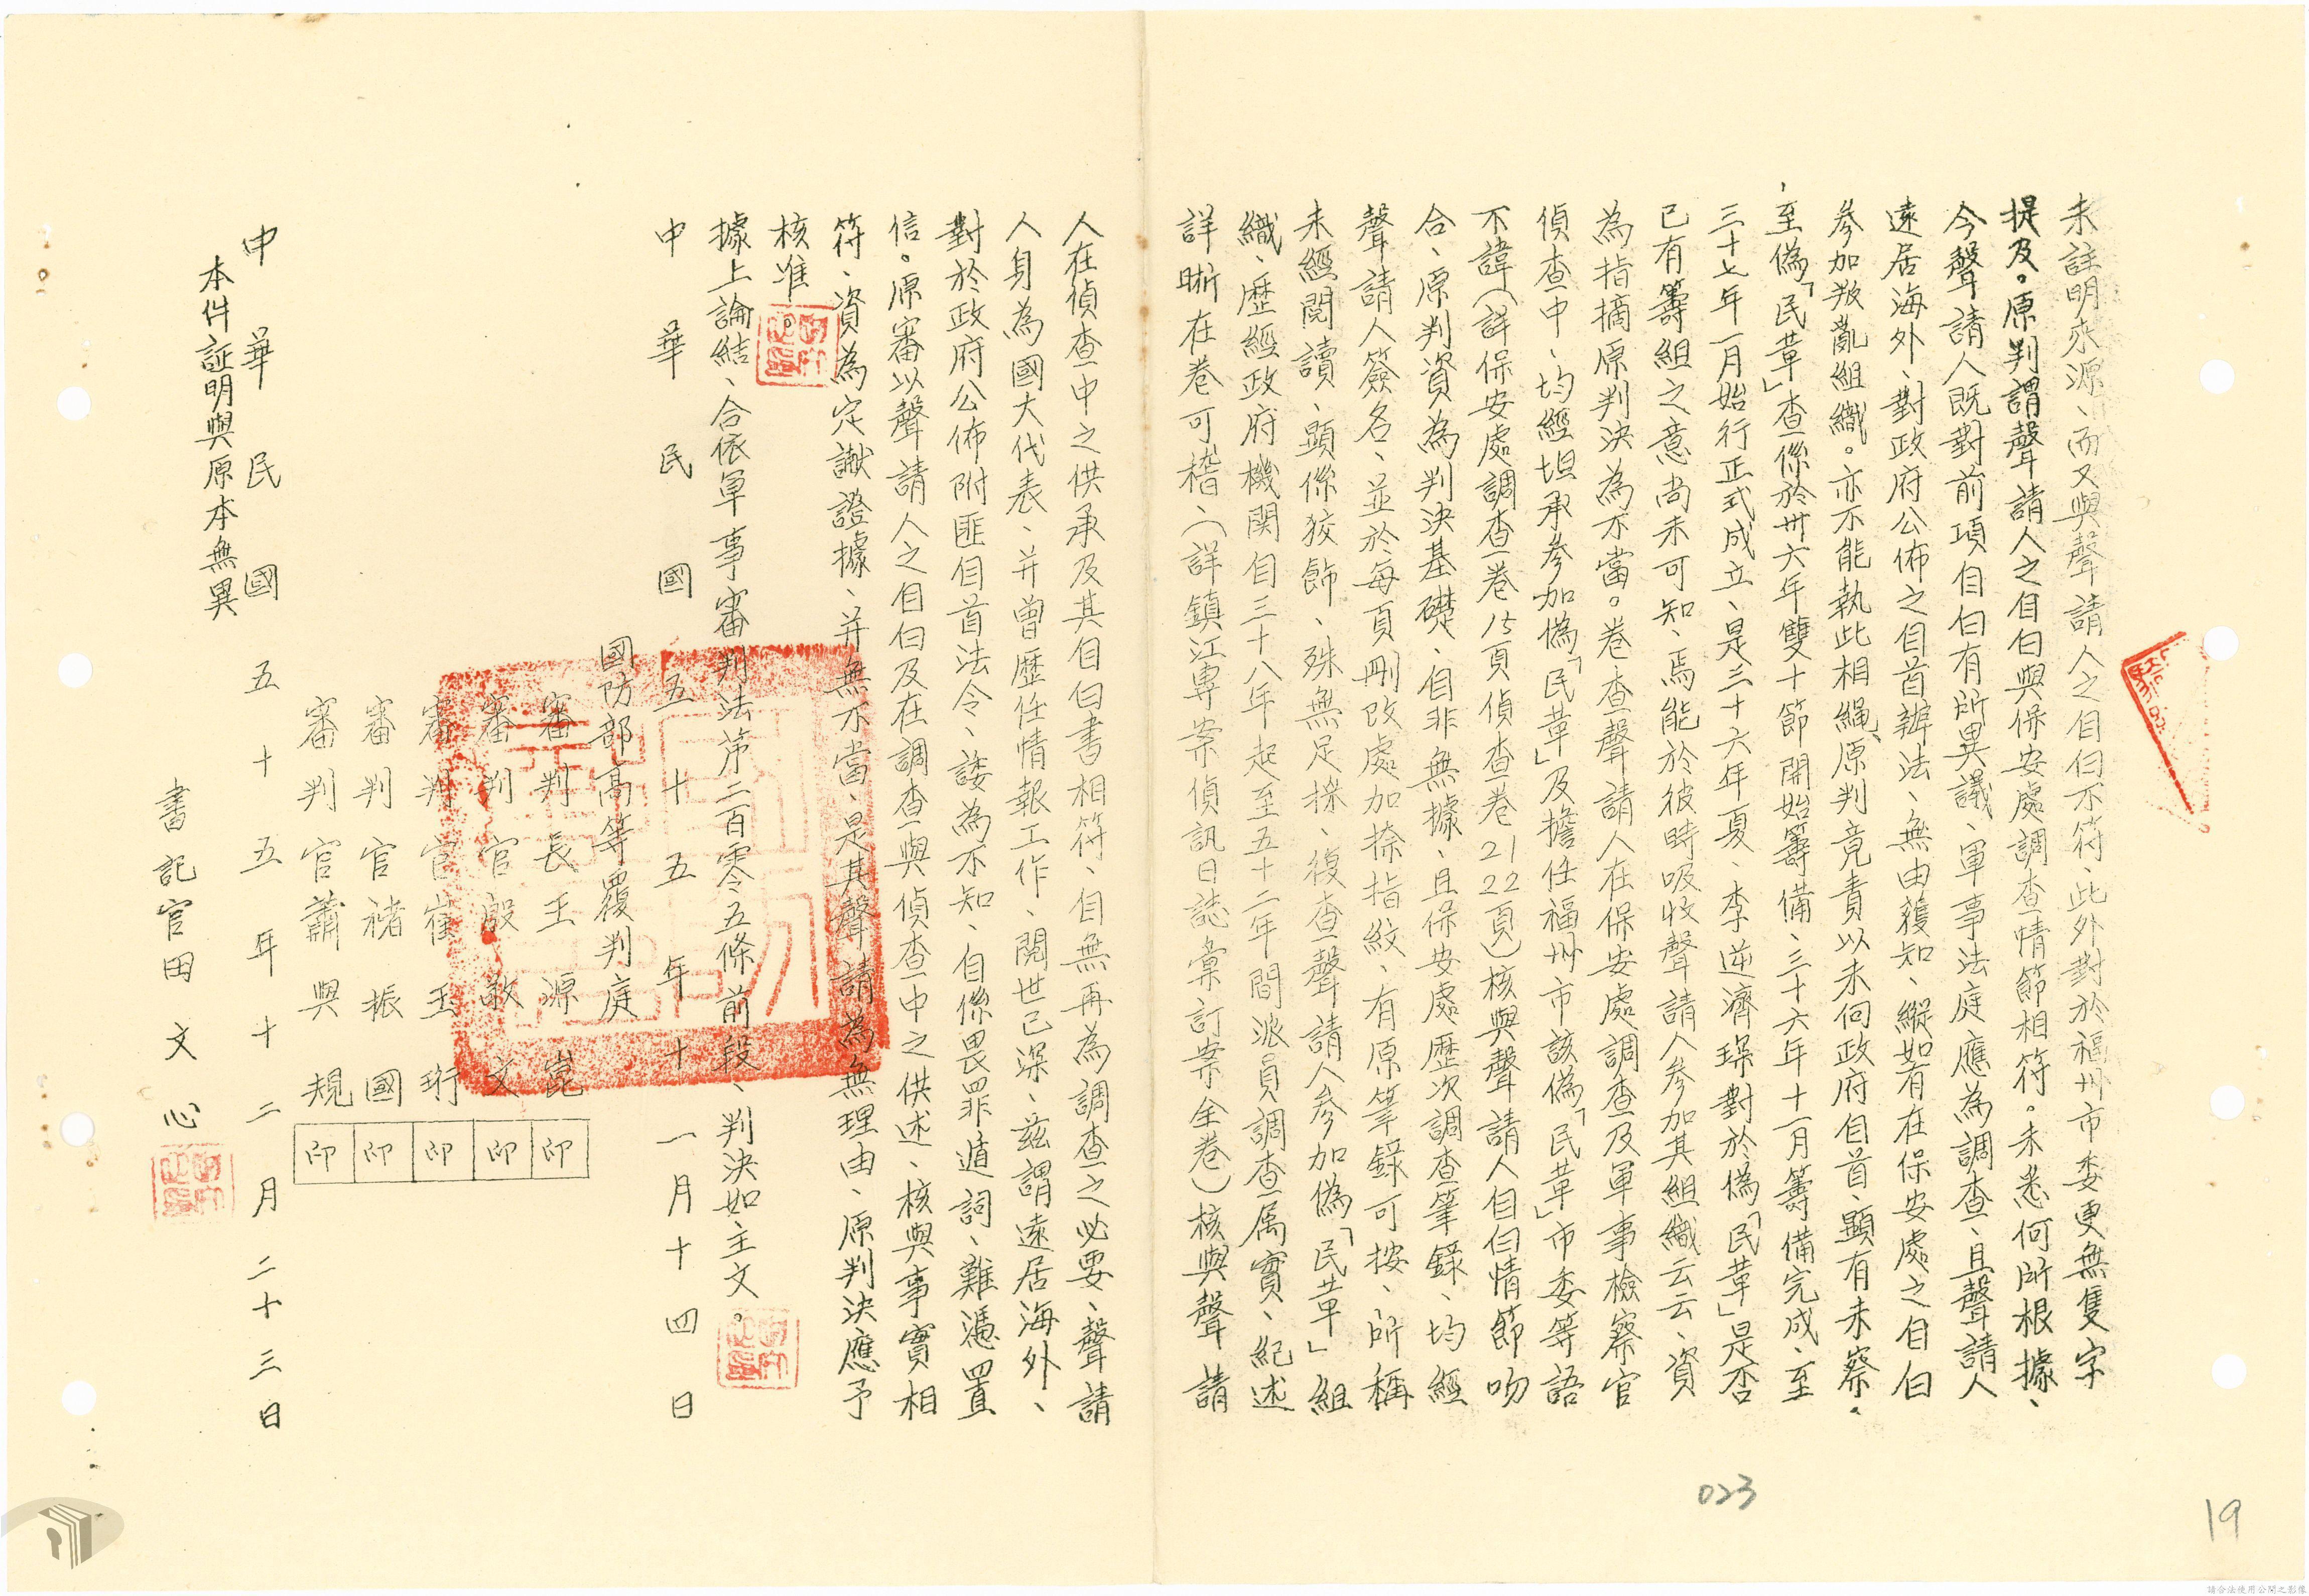 未註明來源、而又與聲請人之自白不符、此外對於福州市委更無隻字
提及。原判謂聲請人之自白與保安處調查情節相符。未悉何所根據、
今聲請人既對前項自白有所異議、軍事法庭應為調查、且聲請人
遠居海外、對政府公佈之自首辦法、無由獲知、縱如有在保安處之自白
參加叛亂組織。亦不能執此相繩、原判竟責以未向政府自首、顯有未察。
至偽「民革」查係於卅六年雙十節開始籌備、三十六年十一月籌備完成、至
三十七年一月始行正式成立、是三十六年夏、李逆濟琛對於偽「民革」是否
已有籌組之意尚未可知、焉能於彼時吸收聲請人參加其組織云云、資
為指摘原判決為不當。卷查聲請人在保安處調查及軍事檢察官
偵查中、均經坦承參加偽「民革」及擔任福州市該偽「民革」市委等語
不諱(詳保安處調查卷15頁偵查卷21 22頁)核與聲請人自白情節吻
合、原判資為判決基礎、自非無據、且保安處歷次調查筆錄、均經
聲請人簽名、並於每頁刪改處加捺指紋、有原筆錄可按、所稱
未經閱讀、顯係狡飾、殊無足採、復查聲請人參加偽「民革」組
織、歷經政府機關自三十八年起至五十二年間派員調查屬實、紀述
詳晰在卷可稽、(詳鎮江專案偵訊日誌彙訂案全卷)核與聲請
人在偵查中之供承及其自白書相符、自無再為調查之必要、聲請
人身為國大代表、并曾歷任情報工作、閱世已深、茲謂遠居海外、
對於政府公佈附匪自首法令、諉為不知、自係畏罪遁詞、難憑置
信。原審以聲請人之自白及在調查與偵查中之供述、核與事實相
符、資為定讞證據、并無不當、是其聲請為無理由、原判決應予
核准。
據上論結、合依軍事審判法第二百零五條前段、判決如主文。
中華民國五十五年十一月十四日
國防部高等覆判庭
審判長王源崑 印
審判官殷敬文 印
審判官崔玉珩 印
審判官褚振國 印
審判官蕭與規 印
中華民國五十五年十二月二十三日
本件証明與原本無異
書記官田文心
023
19
請合法使用公開之影像